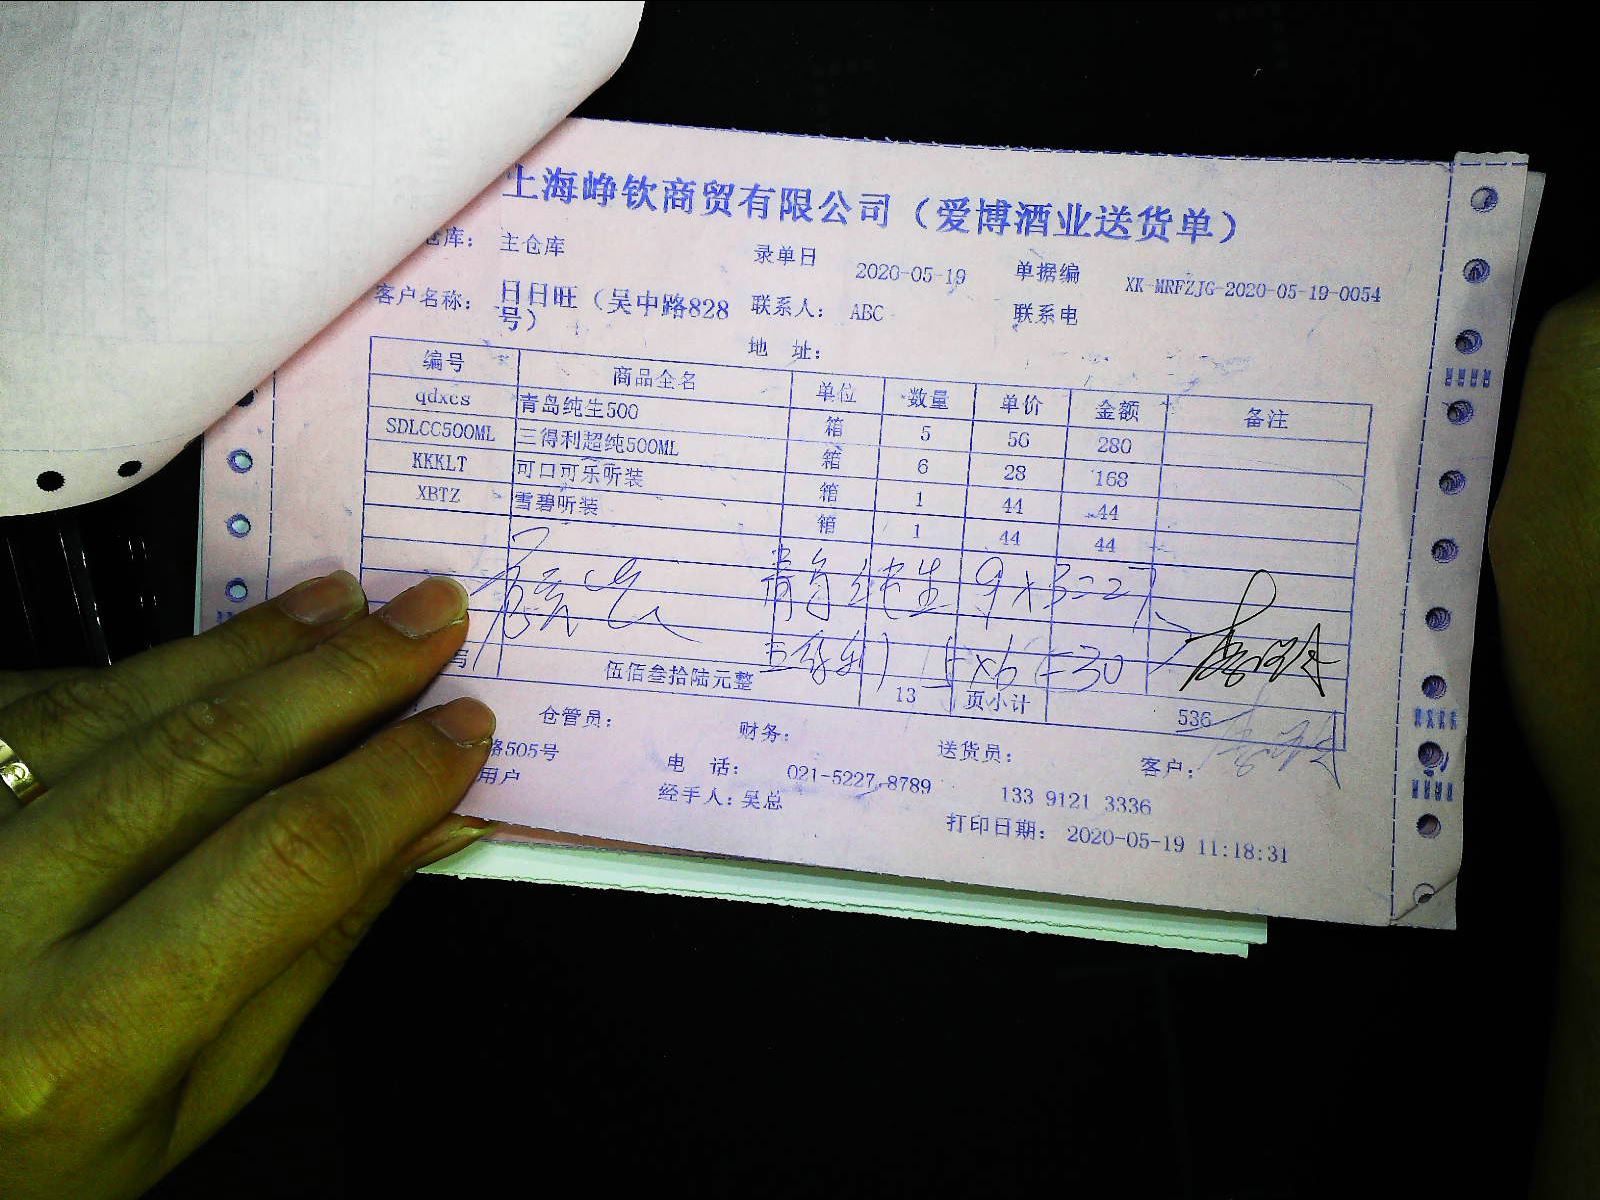 上海峥钦商贸有限公司（爱博酒业送货单）
仓库： 主仓库 录单日 2020-05-19 单据编 XK-MRFZJG-2020-05-19-0054
客户名称： 日日旺（吴中路828号） 联系人： ABC 联系电
地 址：
编号 商品全名 单位 数量 单价 金额 备注
qdxcs 青岛纯生500 箱 5 56 280
SDLCC500ML 三得利超纯500ML 箱 6 28 168
KKKLT 可口可乐听装 箱 1 44 44
XBTZ 雪碧听装 箱 1 44 44
青岛纯生 9×3=27
三得利 5×6=30
写 伍佰叁拾陆元整 13 页小计 536
仓管员： 财务： 送货员： 客户：
路505号 电 话： 021-5227,8789 133 9121 3336
用户 经手人：吴总 打印日期： 2020-05-19 11:18:31